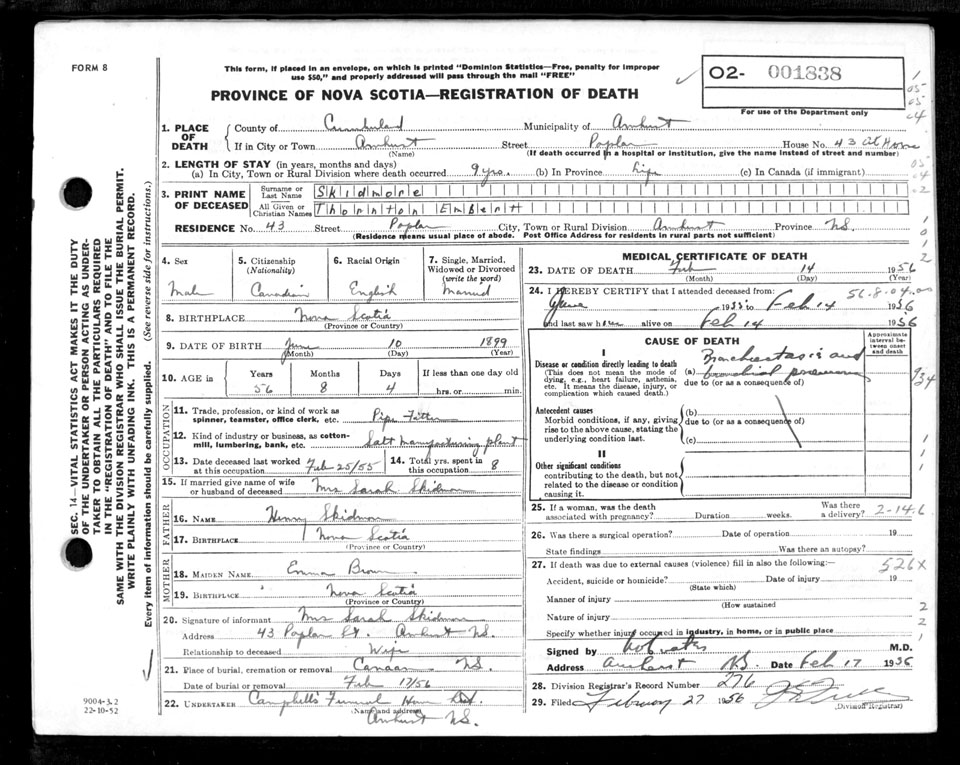 FORM 8
This form, if placed in an envelope, on which is printed "Dominion Statistics—Free, penalty for improper
use $50," and properly addressed will pass through the mail "FREE"
O2- 001838
For use of the Department only
PROVINCE OF NOVA SCOTIA—REGISTRATION OF DEATH
1. PLACE OF DEATH
County of Cumberland Municipality of Amherst
If in City or Town Amherst Street Poplar House No. 43 At Home
(Name) (If death occurred in a hospital or institution, give the name instead of street and number)
2. LENGTH OF STAY (in years, months and days)
(a) In City, Town or Rural Division where death occurred 9 yrs. (b) In Province Life (c) In Canada (if immigrant)
3. PRINT NAME OF DECEASED
Surname or Last Name Skidmore
All Given or Christian Names Thornton Embert
RESIDENCE No. 43 Street Poplar City, Town or Rural Division Amherst Province N.S.
(Residence means usual place of abode. Post Office Address for residents in rural parts not sufficient)
4. Sex
Male
5. Citizenship (Nationality)
Canadian
6. Racial Origin
English
7. Single, Married, Widowed or Divorced (write the word)
Married
8. BIRTHPLACE Nova Scotia
(Province or Country)
9. DATE OF BIRTH June 10 1899
(Month) (Day) (Year)
10. AGE in Years Months Days If less than one day old
56 8 4 hrs. or min.
OCCUPATION
11. Trade, profession, or kind of work as spinner, teamster, office clerk, etc. Pipe Fitter
12. Kind of industry or business, as cotton-mill, lumbering, bank, etc. Salt manufacturing plant
13. Date deceased last worked at this occupation Feb 25/55
14. Total yrs. spent in this occupation 8
15. If married give name of wife or husband of deceased Mrs Sarah Skidmore
FATHER
16. NAME Henry Skidmore
17. BIRTHPLACE Nova Scotia
(Province or Country)
MOTHER
18. MAIDEN NAME Emma Brown
19. BIRTHPLACE Nova Scotia
(Province or Country)
20. Signature of informant Mrs Sarah Skidmore
Address 43 Poplar St. Amherst N.S.
Relationship to deceased Wife
21. Place of burial, cremation or removal Canaan N.S.
Date of burial or removal Feb 17/56
22. UNDERTAKER Campbell's Funeral Home Ltd.
(Name and address)
Amherst N.S.
MEDICAL CERTIFICATE OF DEATH
23. DATE OF DEATH Feb 14 1956
(Month) (Day) (Year)
24. I HEREBY CERTIFY that I attended deceased from:
56.8.04.00
June 1955 to Feb 14 1956
and last saw him alive on Feb 14 1956
CAUSE OF DEATH
Approximate interval between onset and death
I
Disease or condition directly leading to death
(This does not mean the mode of dying, e.g., heart failure, asthenia, etc. It means the disease, injury, or complication which caused death.)
(a) Bronchiectasis and bronchial pneumonia
due to (or as a consequence of)
934
Antecedent causes
Morbid conditions, if any, giving rise to the above cause, stating the underlying condition last.
(b)
due to (or as a consequence of)
(c)
II
Other significant conditions
contributing to the death, but not related to the disease or condition causing it.
25. If a woman, was the death associated with pregnancy? Duration weeks. Was there a delivery? 2-14.6
26. Was there a surgical operation? Date of operation 19
State findings Was there an autopsy?
27. If death was due to external causes (violence) fill in also the following:
526X
Accident, suicide or homicide? Date of injury 19
(State which)
Manner of injury
(How sustained)
Nature of injury
Specify whether injury occurred in industry, in home, or in public place
Signed by M.D.
Address Amherst N.S. Date Feb 17 1956
28. Division Registrar's Record Number 276
29. Filed February 27 1956
(Division Registrar)
SEC. 14—VITAL STATISTICS ACT MAKES IT THE DUTY
OF THE UNDERTAKER OR PERSON ACTING AS UNDER-
TAKER TO OBTAIN ALL THE PARTICULARS REQUIRED
IN THE "REGISTRATION OF DEATH" AND TO FILE THE
SAME WITH THE DIVISION REGISTRAR WHO SHALL ISSUE THE BURIAL PERMIT.
WRITE PLAINLY WITH UNFADING INK. THIS IS A PERMANENT RECORD.
Every item of information should be carefully supplied. (See reverse side for instructions.)
9004-3.2
22-10-52